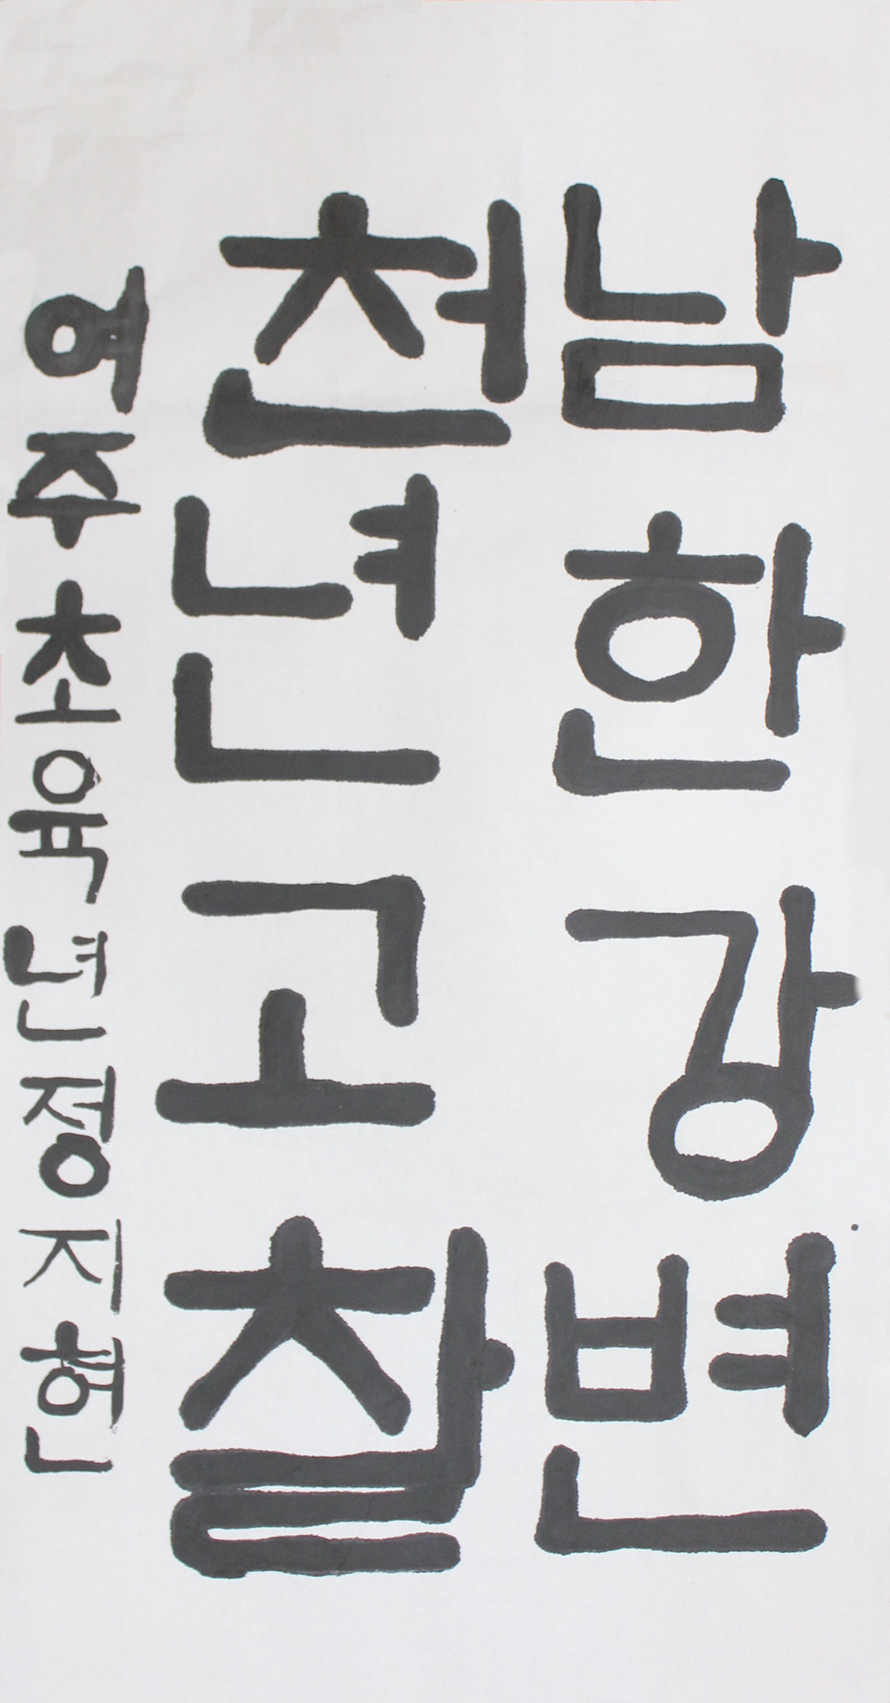 남한강변
천년고찰
여주초육년정지현